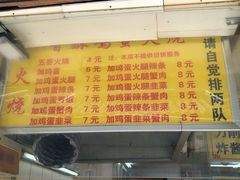 注：本店不提供切饼服务
火烧
五香火烧 4元
加鸡蛋 6元
加鸡蛋火腿 7元
加鸡蛋辣条 7元
加鸡蛋蟹肉 7元
加鸡蛋青椒 7元
加鸡蛋韭菜 7元
加鸡蛋火腿辣条 8元
加鸡蛋火腿蟹肉 8元
加鸡蛋火腿韭菜 8元
加鸡蛋辣条蟹肉 8元
加鸡蛋辣条韭菜 8元
加鸡蛋韭菜蟹肉 8元
请自觉排两队